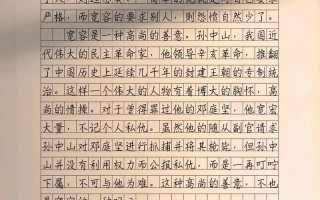 严格，而宽容的要求别人，则怨愤自然少了。
宽容是一种高尚的善意。孙中山，我国近
代伟大的民主革命家，他领导辛亥革命，推翻
了中国历史上延续几千年的封建王朝的专制统
治。这样一个伟大的人物有着博大的胸怀，高
尚的情操。对于曾得罪过他的邓庭坚，他宽宏
大量，不记个人私仇。虽然他的随从副官请求
孙中山对邓庭坚进行抓捕并将其轮胝，但孙中
山并没有利用权力而公报私仇，而是一再叮咛
下属，不可与他为难。这种高尚的善意，不也